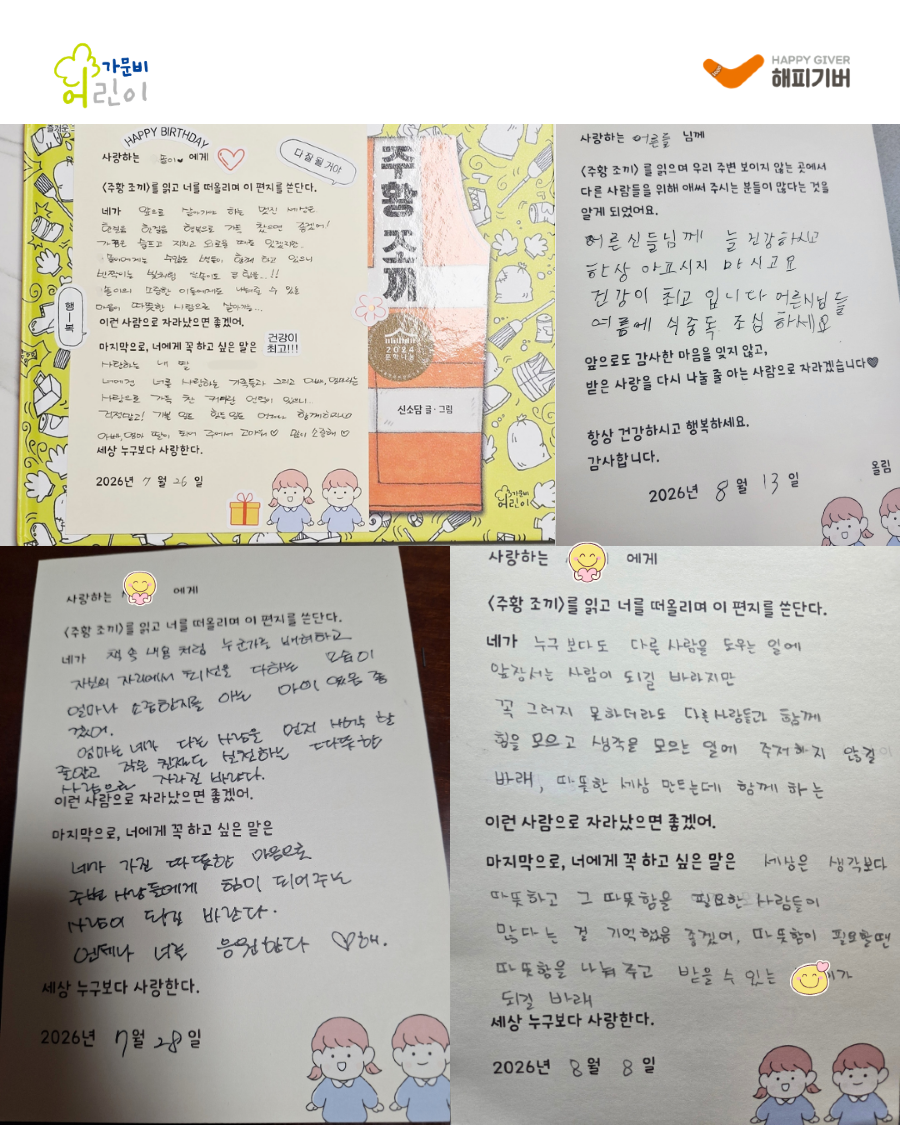 가문비
어린이
HAPPY GIVER
해피기버
HAPPY BIRTHDAY
사랑하는 에게
다 잘 될 거야
〈주황 조끼〉를 읽고 너를 떠올리며 이 편지를 쓴단다.
네가 앞으로 살아가야 하는 멋진 세상은
한걸음 한걸음 행복으로 가득 찼으면 좋겠어!
가끔은 슬프고 지치고 외로울 때도 있겠지만..
반짝이는 빛처럼
따뜻한 사람으로 살아가길...
이런 사람으로 자라났으면 좋겠어.
마지막으로, 너에게 꼭 하고 싶은 말은
건강이
최고!!!
사랑하는 내 딸
너에겐 너를 사랑하는 가족들과 그리고
사랑으로 가득 찬
걱정말고! 기쁠 때도 힘들 때도 언제나 함께
아빠, 엄마 딸이 되어 주어서 고마워♡ 많이 소중해♡
세상 누구보다 사랑한다.
2026년 7월 26일
행복
주황 조끼
2024
문학나눔
신소담 글·그림
가문비
어린이
사랑하는 어른들 님께
〈주황 조끼〉를 읽으며 우리 주변 보이지 않는 곳에서
다른 사람들을 위해 애써 주시는 분들이 많다는 것을
알게 되었어요.
어른신들님께 늘 건강하시고
항상 아프시지 마시고요
건강이 최고 입니다 어른시님들
여름에 식중독 조심 하세요
앞으로도 감사한 마음을 잊지 않고,
받은 사랑을 다시 나눌 줄 아는 사람으로 자라겠습니다♥
항상 건강하시고 행복하세요.
감사합니다.
2026년 8월 13일
올림
사랑하는 에게
〈주황 조끼〉를 읽고 너를 떠올리며 이 편지를 쓴단다.
네가 책 속 내용처럼 누군가를 배려하고
자신의 자리에서 최선을 다하는 모습이
얼마나 소중한지를 아는 아이 였음 좋
겠어.
엄마는 네가 다른 사람을 먼저 생각 할
줄알고 작은 친절도 실천하는 따뜻한
사람으로 자라길 바란다.
이런 사람으로 자라났으면 좋겠어.
마지막으로, 너에게 꼭 하고 싶은 말은
네가 가진 따뜻한 마음으로
주변 사람들에게 힘이 되어주는
사람이 되길 바란다.
언제나 너를 응원한다 ♡해.
세상 누구보다 사랑한다.
2026년 7월 28일
사랑하는 에게
〈주황 조끼〉를 읽고 너를 떠올리며 이 편지를 쓴단다.
네가 누구 보다도 다른 사람을 도우는 일에
앞장서는 사람이 되길 바라지만
꼭 그러지 못하더라도 다른 사람들과 함께
힘을 모으고 생각을 모으는 일에 주저하지 않길
바래, 따뜻한 세상 만드는데 함께 하는
이런 사람으로 자라났으면 좋겠어.
마지막으로, 너에게 꼭 하고 싶은 말은 세상은 생각보다
따뜻하고 그 따뜻함을 필요한 사람들이
많다는 걸 기억했음 좋겠어, 따뜻함이 필요할땐
따뜻함을 나눠주고 받을 수 있는 가
되길 바래
세상 누구보다 사랑한다.
2026년 8월 8일